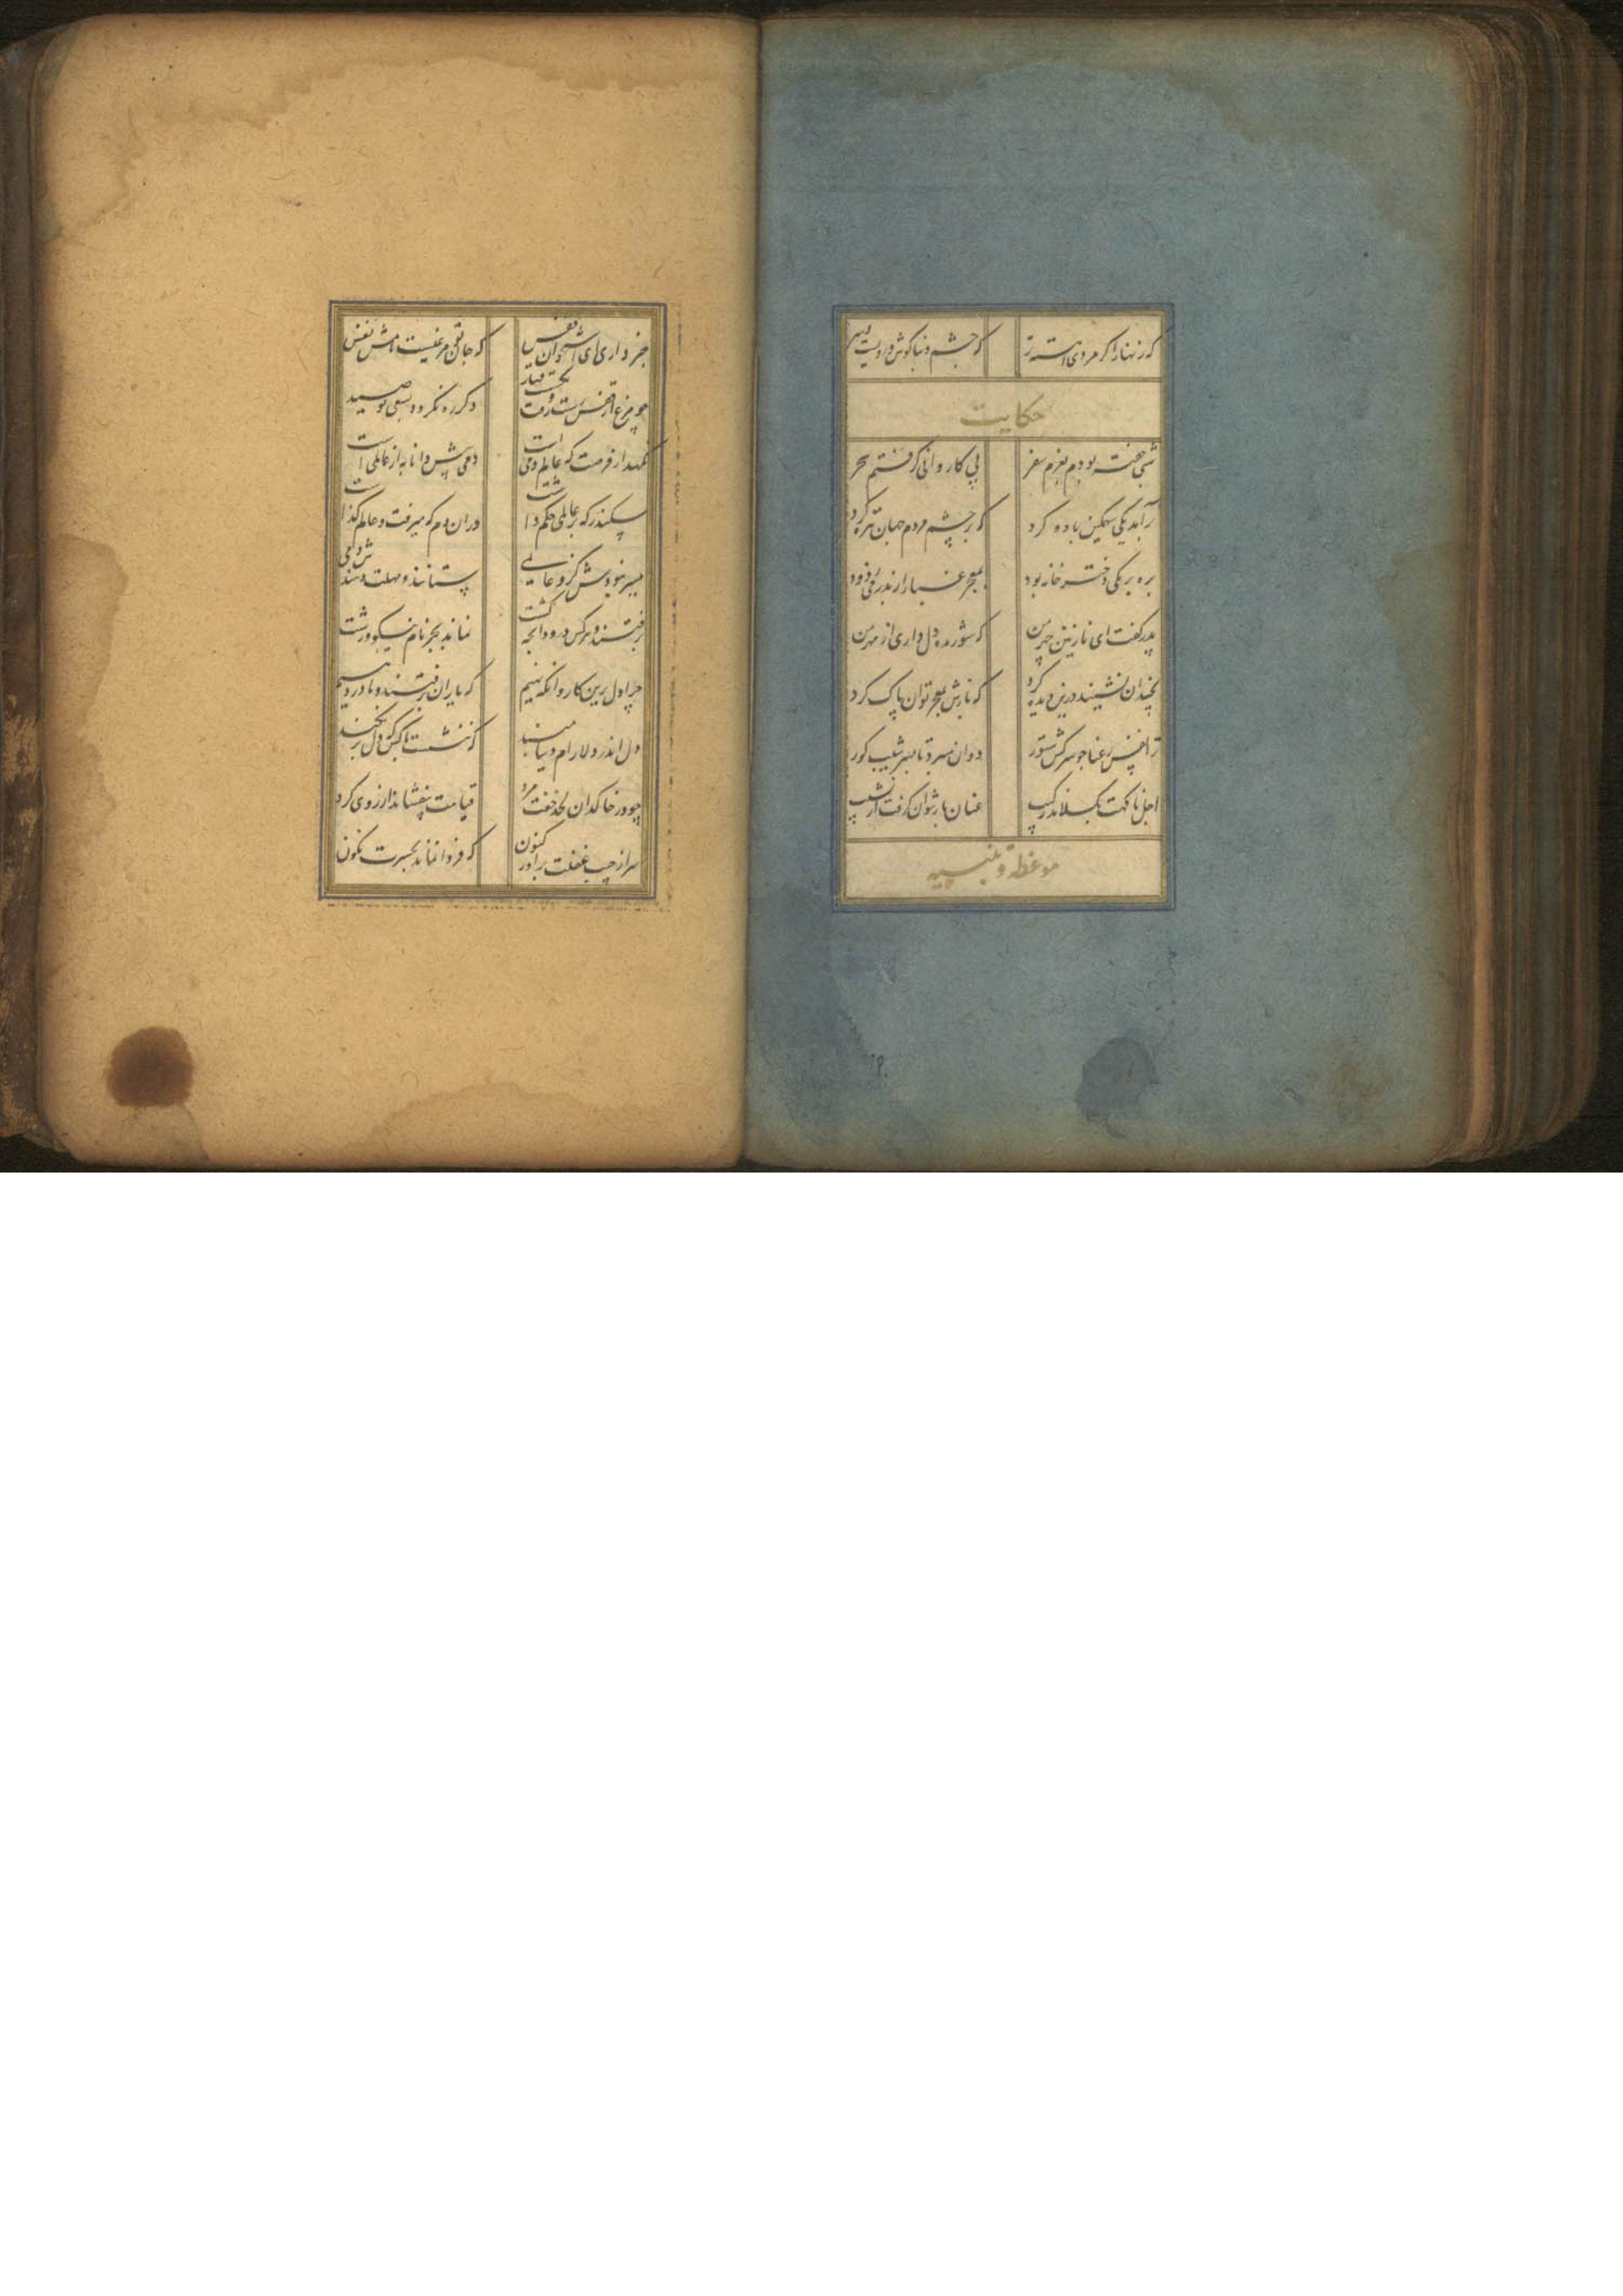 که زنهار اگر مردی آهسته تر که چشم و بناگوش و رویست و سر
حکایت
شبی خفته بودم بعزم سفر پی کاروانی گرفتم سحر
برآمد یکی سهمگین باد و گرد که بر چشم مردم جهان تیره کرد
بره بر یکی دختر خانه بود بمعجر غبار از پدر می زدود
پدر گفت ای نازنین چهر من که شوریده دل داری از مهر من
نچندان نشیند درین دیده گرد که بازش بمعجر توان پاک کرد
ترا نفس رعنا چو سرکش ستور دوان میبرد تا بسر شیب گور
اجل ناگهت بگسلاند رکیب عنان باز نتوان گرفت از نشیب
موعظه و تنبیه
خبر داری ای استخوان قفس که جان تو مرغیست نامش نفس
چو مرغ از قفس رفت و بگسست قید دگر ره نگردد بسعی تو صید
نگهدار فرصت که عالم دمی است دمی پیش دانا به از عالمی است
سکندر که بر عالمی حکم داشت در آن دم که میرفت و عالم گذاشت
میسر نبودش کزو عالمی ستانند و مهلت دهندش دمی
برفتند و هر کس درود آنچه کشت نماند بجز نام نیکو و زشت
چرا دل برین کاروانگه نهیم که یاران برفتند و ما در رهیم
دل اندر دلارام دنیا مبند که ننشست با کس که دل بر نکند
چو در خاکدان لحد خفت مرد قیامت بیفشاند از روی گرد
سر از جیب غفلت برآور کنون که فردا نماند بحسرت نگون